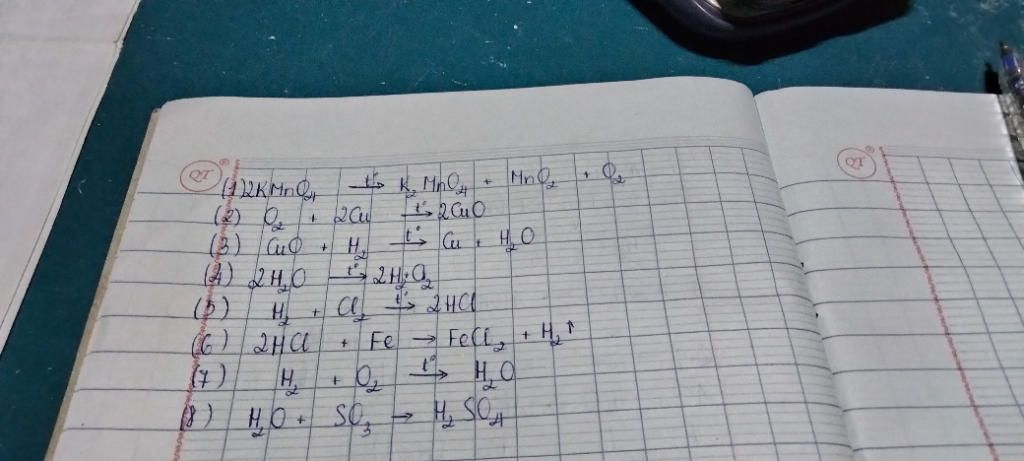 (1) 2KMnO₄ —t°→ K₂MnO₄ + MnO₂ + O₂
(2) O₂ + 2Cu —t°→ 2CuO
(3) CuO + H₂ —t°→ Cu + H₂O
(4) 2H₂O —t°→ 2H₂+O₂
(5) H₂ + Cl₂ —t°→ 2HCl
(6) 2HCl + Fe → FeCl₂ + H₂↑
(7) H₂ + O₂ —t°→ H₂O
(8) H₂O + SO₃ → H₂SO₄